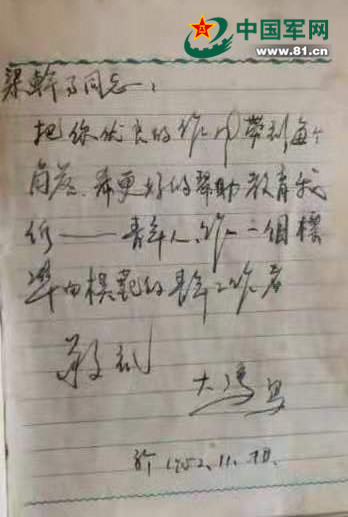 中国军网
www.81.cn
梁幹了同志：
把你优良的作风带到每个
角落，希更好的帮助教育我
们——青年人，作一个標
準的模范的青年工作者
敬礼
大
於1952.11.